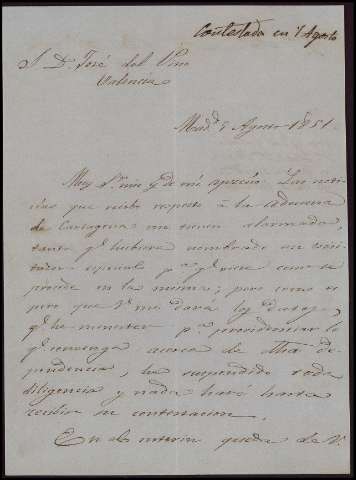 Contestada en 7 Agosto
S. D. José del Pino
Valencia
Mad.d 5 Agosto 1851.
Muy S.or mio y de mi aprecio: Las noti-
cias que recibo respecto á la Aduana
de Cartagena me tienen alarmado,
tanto q.e hubiera nombrado un visi-
tador especial p.a q.e viese como se
procede en la misma; pero como es-
pero que V. me dará los datos,
q.e he menester p.a providenciar lo
q.e convenga acerca de dha de-
pendencia, he suspendido toda
diligencia y nada haré hasta
recibir su contestacion.
En el interin queda de V.